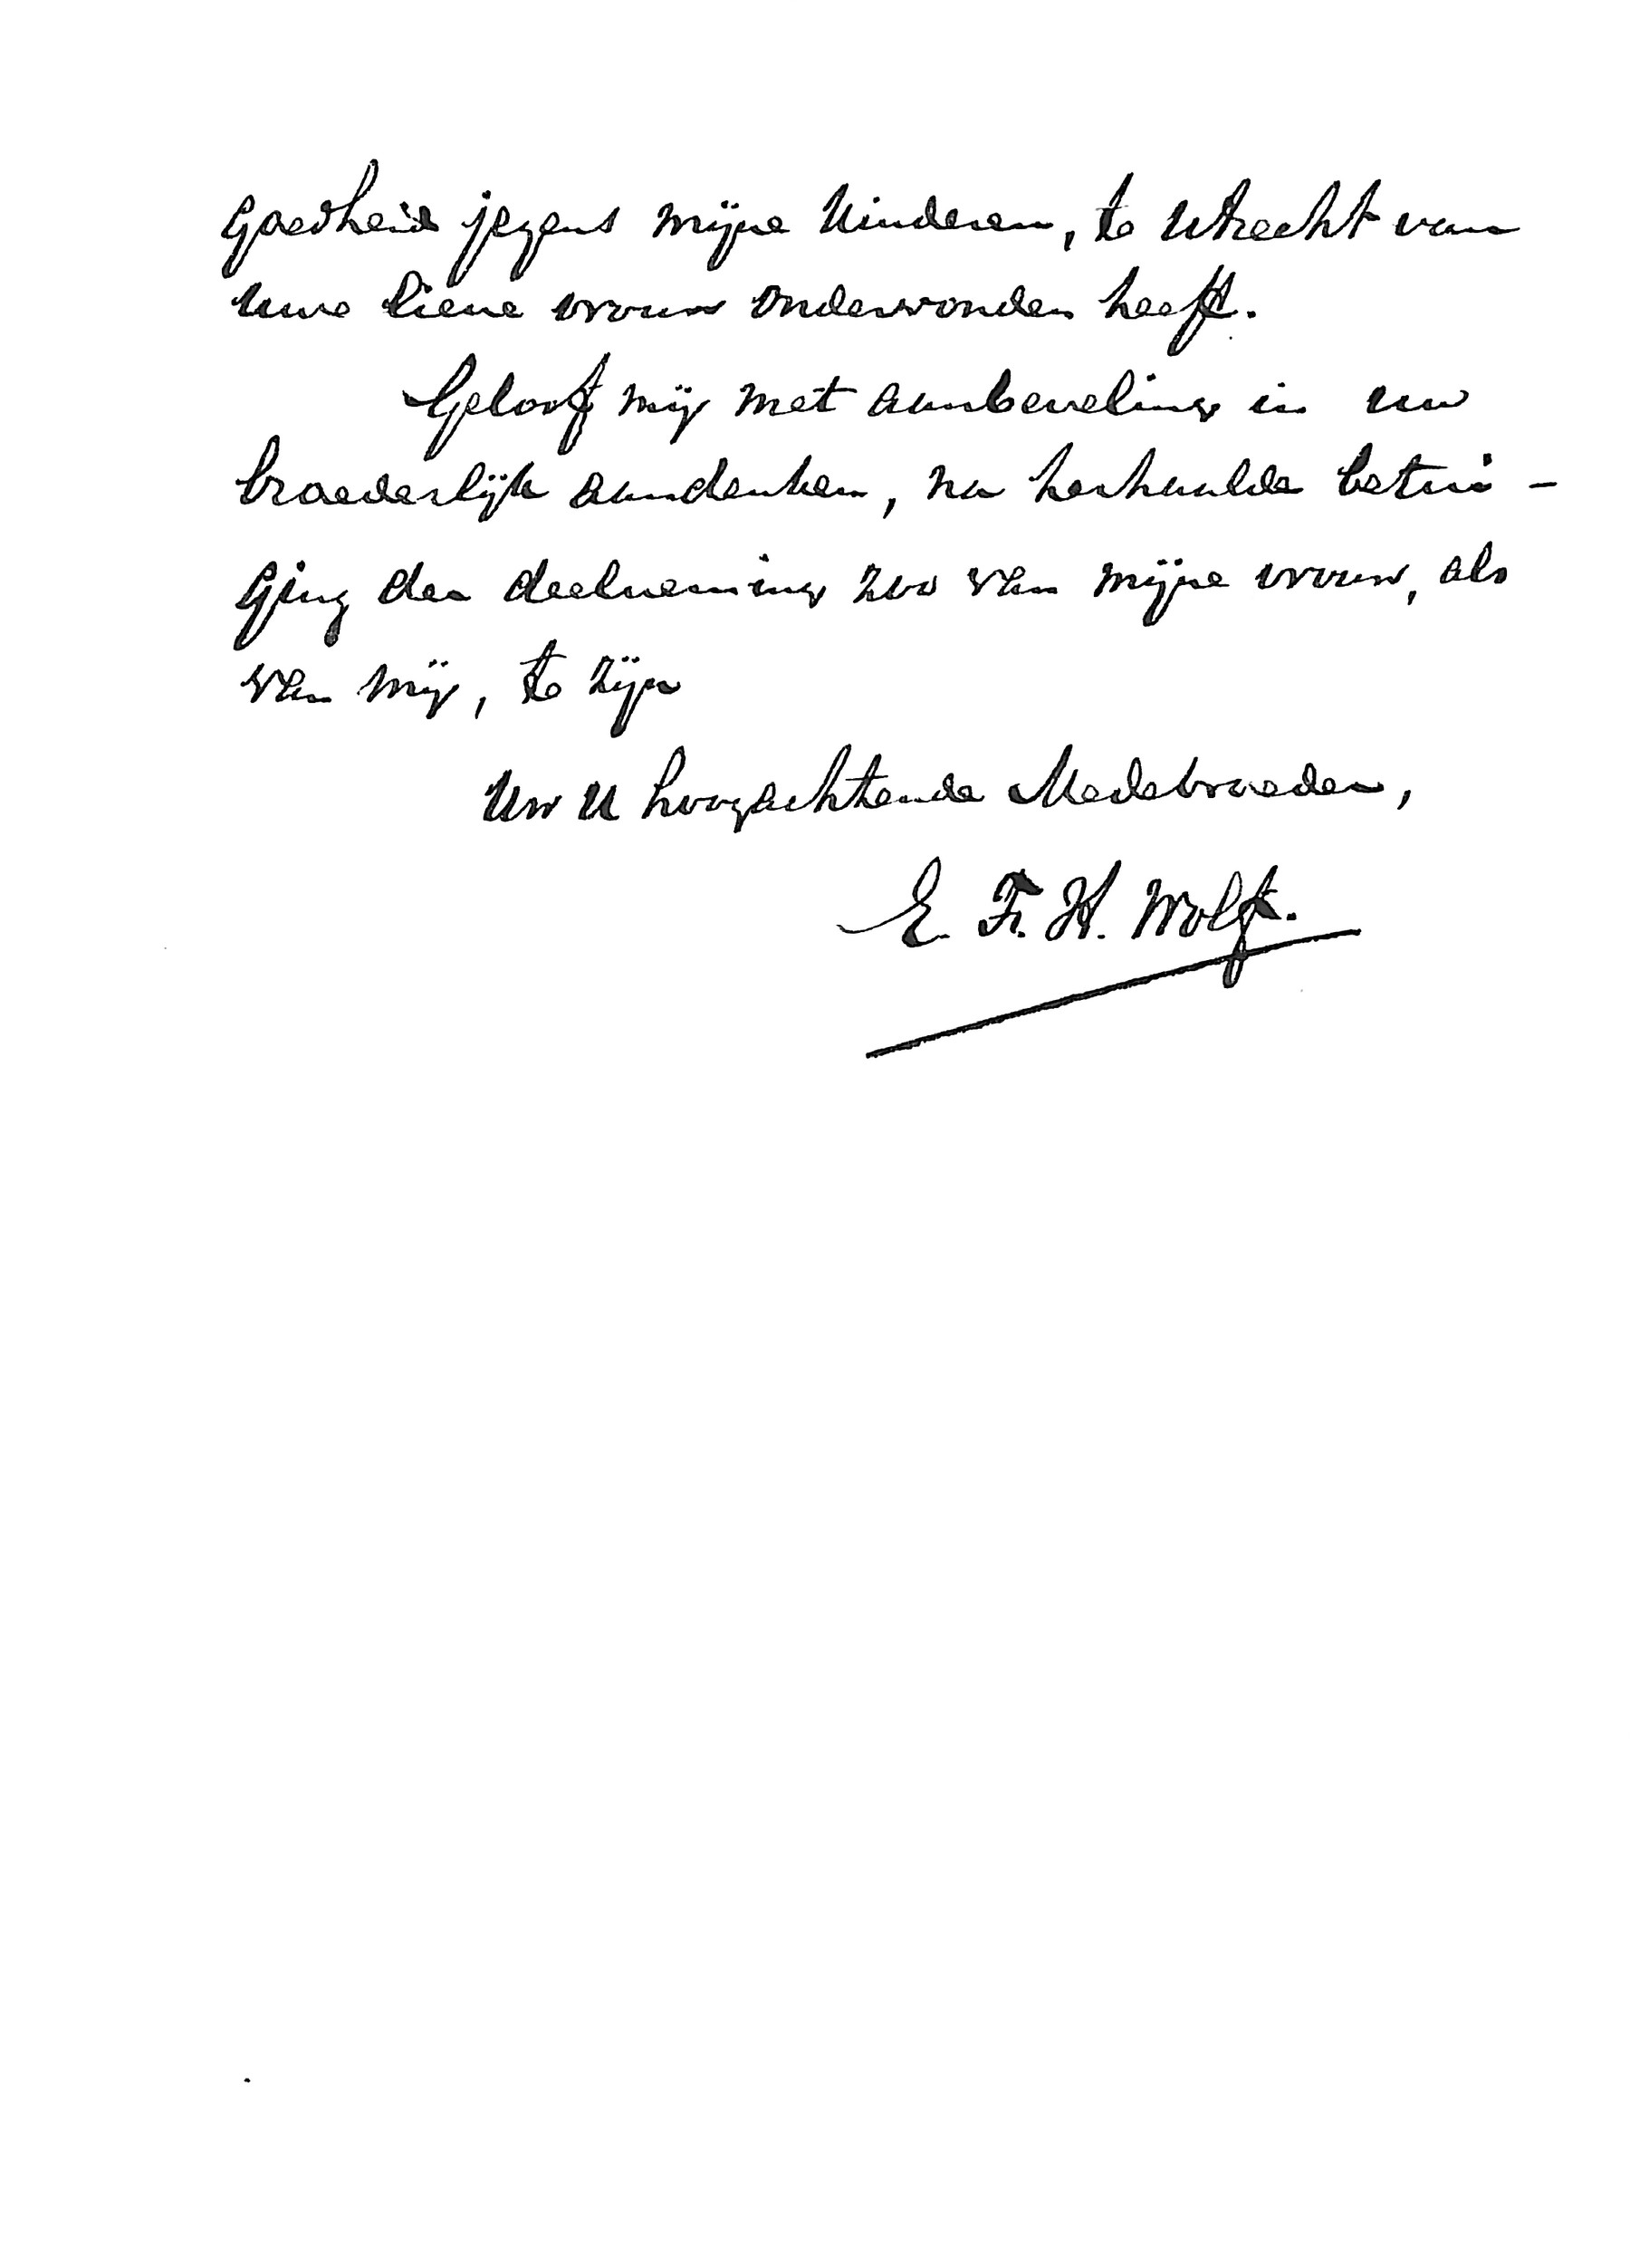 goedheid jegens mijne kinderen, te Utrecht van
uwe lieve vrouw ondervonden heeft.
Geloof mij met aanbeveling in uw
broederlijk aandenken, na herhaalde betui-
ging der deelneming zoo van mijne vrouw, als
van mij, te zijn
Uw U hoogachtende Medebroeder,
E. F. H. Wolf.